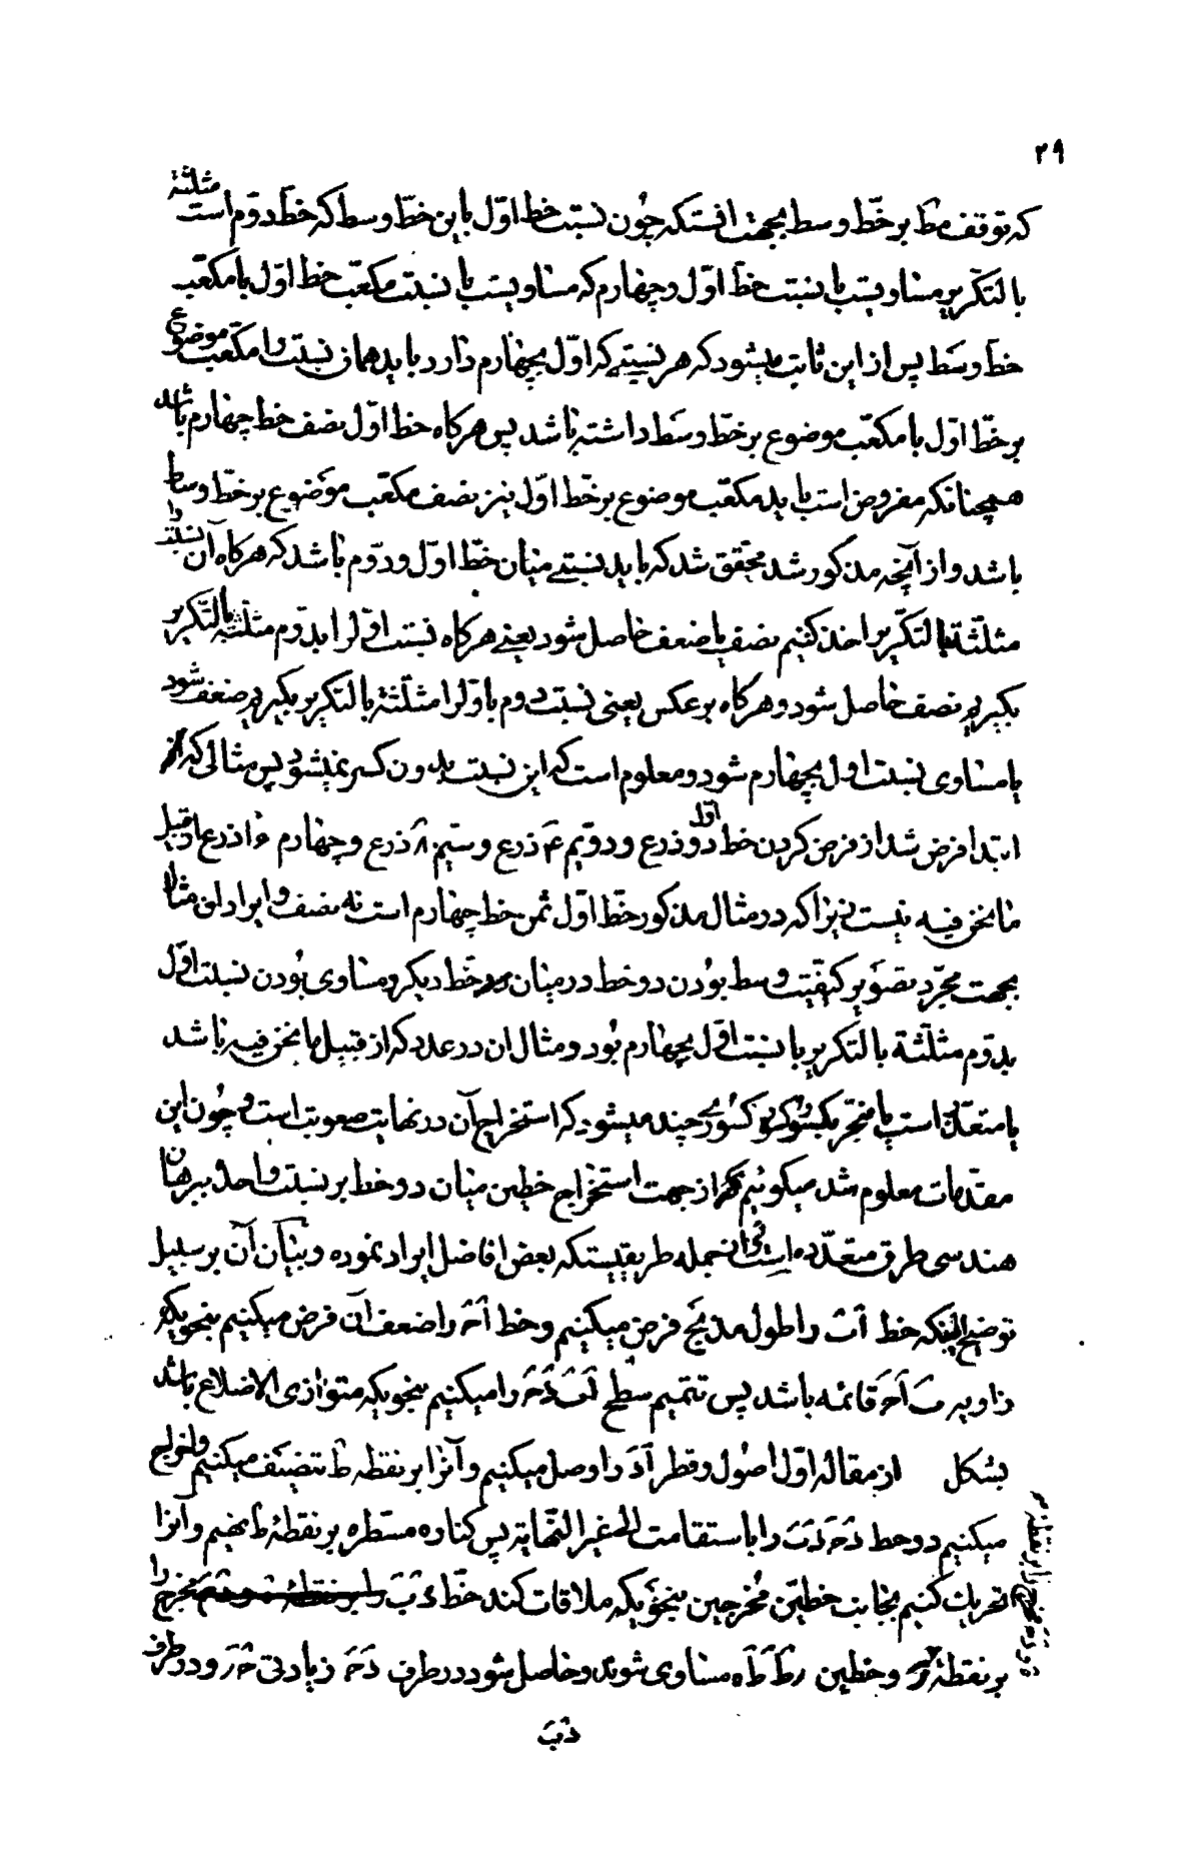 ۲۹
که توقف مط بر خطّ وسط بجهت انستکه چون نسبت خط اوّل باین خطّ وسط که خط دوّم است مثلثة
بالتکریر مساویست با نسبت خطّ اوّل و چهارم که مساویست با نسبت مکعّب خط اوّل با مکعّب
خطّ وسط پس از این ثابت میشود که هر نسبتیکه اوّل بچهارم دارد باید همان نسبت را مکعّب موضوع
بر خطّ اوّل با مکعّب موضوع بر خطّ وسط داشته باشد پس هرکاه خط اوّل نصف خط چهارم باشد
همچنانکه مفروض است باید مکعّب موضوع بر خط اوّل نیز نصف مکعّب موضوع بر خطّ وسط
باشد و از آنچه مذکور شد محقّق شد که باید نسبتے میان خطّ اوّل و دوّم باشد که هرکاه آن نسبت را
مثلّثة بالتکریر اخذ کنیم نصف یا ضعف حاصل شود یعنے هرکاه نسبت اوّل را بدوّم مثلّثة بالتکریر
بکیریم نصف حاصل شود و هرکاه برعکس یعنی نسبت دوم باوّل را مثلّثة بالتکریر بکیریم ضعف شود
یا مساوی نسبت اول بچهارم شود و معلوم است که این نسبت بدون کسر نمیشود پس مثالی که در
ابتدا فرض شد از فرض کردن خط اوّل دو ذرع و دوّیم ۴ ذرع و سیّم ۸ ذرع و چهارم ۱۶ ذرع از قبیل
ما نحن فیه نیست زیرا که در مثال مذکور خطّ اوّل ثمن خط چهارم است نه نصف و ایراد این مثال
بجهت مجرّد تصویر کیفیّت وسط بودن دو خط در میان دو خطّ دیکر و مساوی بودن نسبت اوّل
بدوّم مثلّثة بالتکریر با نسبت اوّل بچهارم بود و مثال ان در عدد که از قبیل ما نحن فیه باشد
یا متعذّر است یا منجرّ بکسور چند میشود که استخراج آن در نهایت صعوبت است و چون این
مقدمات معلوم شد میکوئیم که از جهت استخراج خطین میان دو خط بر نسبت واحده ببرهان
هندسی طرق متعدّده است از انجمله طریقیستکه بعض افاضل ایراد نموده و بیان آن بر سبیل
توضیح اینکه خط آب را طول مذبح فرض میکنیم و خط آحَ را ضعف آن فرض میکنیم بنحویکه
زاویه بَ آحَ قائمه باشد پس تتمیم سطح آبَ دَحَ را میکنیم بنحویکه متوازی الاضلاع باشد
بشکل از مقاله اوّل اصول و قطر آدَ را وصل میکنیم و آنرا بر نقطه طَ تنصیف میکنیم و اخراج
میکنیم دو خط دَحَ دَبَ را باستقامت الی غیر النّهایة پس کناره مسطره بر نقطهٔ ط نهیم و انرا
تحریک کنیم بجانب خطیّن مخرجین بنحویکه ملاقات کند خطّ دَبَ مخرج را
بر نقطهٔ و خطین رطَ طَه مساوی شوند و حاصل شود در طرف دَحَ زیادتی حَرَ و در طرف
دَبَ